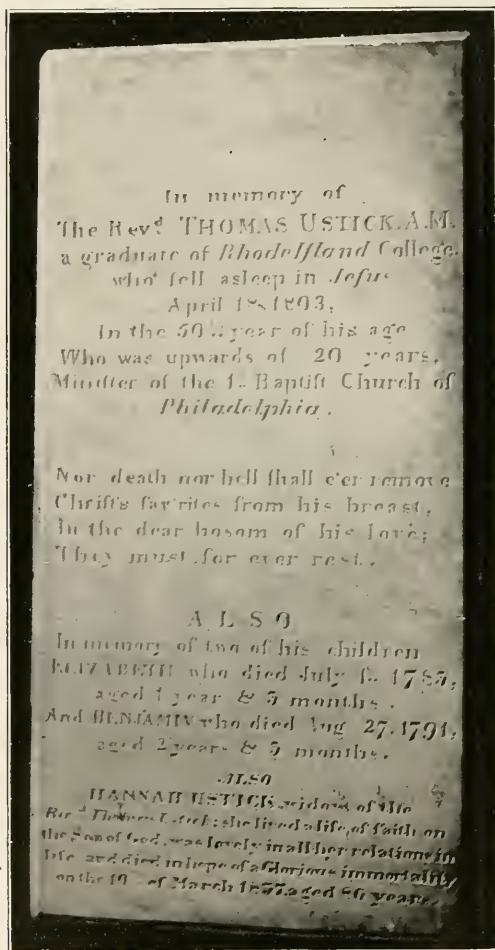 In memory of
The Rev.ᵈ THOMAS USTICK.A.M.
a graduate of RhodeIſland College.
who fell asleep in Jeſus
April 18 1803,
In the 50 year of his age
Who was upwards of 20 years,
Miniſter of the 1 Baptiſt Church of
Philadelphia.
Nor death nor hell ſhall e'er remove
Chriſt's fav'rites from his breast,
In the dear bosom of his love;
They must for ever rest.
ALSO
In memory of two of his children
ELIZABETH who died July 1785,
aged 1 year & 5 months.
And BENJAMIN who died Aug 27.1791,
aged 2 years & 5 months.
ALSO
HANNAH USTICK widow of the
Rev.ᵈ Thomas Ustick; she lived a life of faith on
the Son of God, was lovely in all her relations in
life and died in hope of a Glorious immortality
on the 19 of March 1837 aged 86 years.